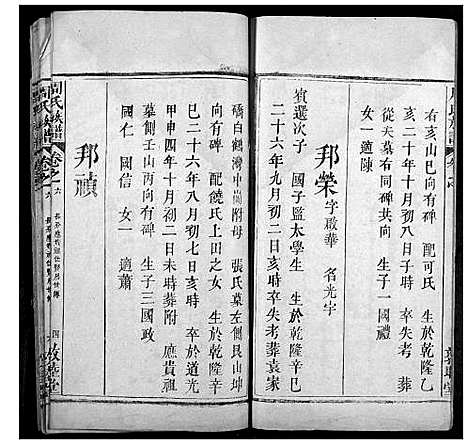 右亥山巳向有碑 配可氏 生於乾隆乙
亥二十年十月初八日子時 卒失考 葬
從夫墓亥山巳向 生子一 國禮
女一 適陳
邦榮 字啟華 名光宇
貞選次子 國子監太學生 生於乾隆辛巳
二十六年九月初二日亥時 卒失考葬袁家
礄白鶴灣中嵐附母 張氏墓左側艮山坤
向有碑 配饒氏上田之女 生於乾隆辛
巳二十六年八月初七日亥時 卒於道光
甲申四年十月初二日未時葬附 應貴祖
墓側壬山丙向有碑 生子三國政
國仁 國信 女一 適蕭
邦禎
周氏族譜
卷之六
四
敦睦堂